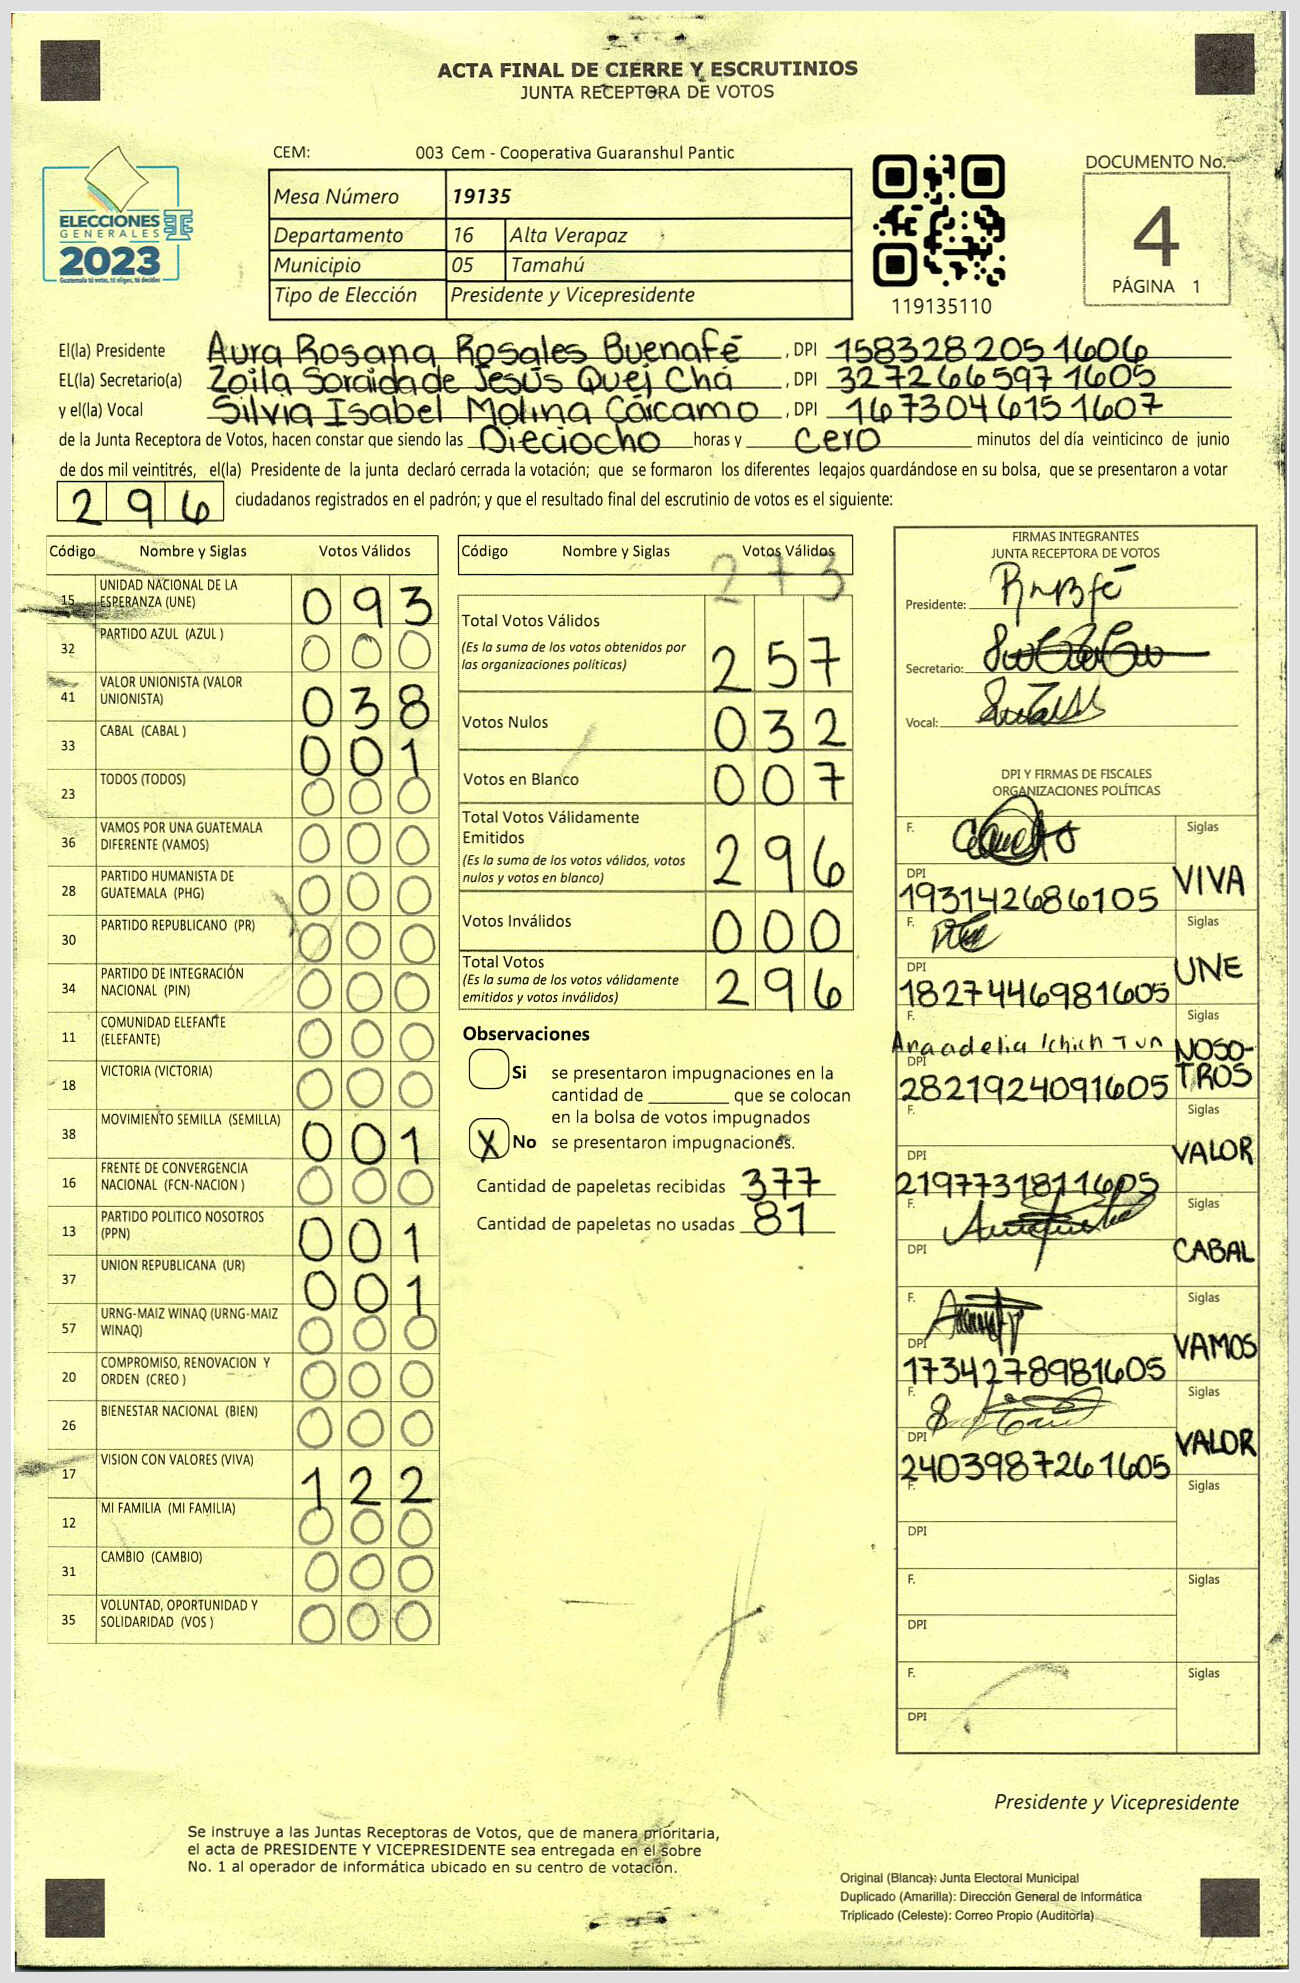 ACTA FINAL DE CIERRE Y ESCRUTINIOS
JUNTA RECEPTORA DE VOTOS
CEM: 003 Cem - Cooperativa Guaranshul Pantic
DOCUMENTO No.
4
PÁGINA 1
ELECCIONES
GENERALES
2023
Guatemala tú votas, tú eliges, tú decides
Mesa Número 19135
Departamento 16 Alta Verapaz
Municipio 05 Tamahú
Tipo de Elección Presidente y Vicepresidente
119135110
El(la) Presidente Aura Rosana Rosales Buenafé, DPI 1583282051606
EL(la) Secretario(a) Zoila Soraida de Jesús Quej Chá, DPI 3272665971605
y el(la) Vocal Silvia Isabel Molina Cárcamo, DPI 1673046151607
de la Junta Receptora de Votos, hacen constar que siendo las Dieciocho horas y cero minutos del día veinticinco de junio
de dos mil veintitrés, el(la) Presidente de la junta declaró cerrada la votación; que se formaron los diferentes legajos guardándose en su bolsa, que se presentaron a votar
296 ciudadanos registrados en el padrón; y que el resultado final del escrutinio de votos es el siguiente:
Código Nombre y Siglas Votos Válidos
15 UNIDAD NACIONAL DE LA ESPERANZA (UNE) 093
32 PARTIDO AZUL (AZUL ) 000
41 VALOR UNIONISTA (VALOR UNIONISTA) 038
33 CABAL (CABAL ) 001
23 TODOS (TODOS) 000
36 VAMOS POR UNA GUATEMALA DIFERENTE (VAMOS) 000
28 PARTIDO HUMANISTA DE GUATEMALA (PHG) 000
30 PARTIDO REPUBLICANO (PR) 000
34 PARTIDO DE INTEGRACIÓN NACIONAL (PIN) 000
11 COMUNIDAD ELEFANTE (ELEFANTE) 000
18 VICTORIA (VICTORIA) 000
38 MOVIMIENTO SEMILLA (SEMILLA) 001
16 FRENTE DE CONVERGENCIA NACIONAL (FCN-NACION ) 000
13 PARTIDO POLITICO NOSOTROS (PPN) 001
37 UNION REPUBLICANA (UR) 001
57 URNG-MAIZ WINAQ (URNG-MAIZ WINAQ) 000
20 COMPROMISO, RENOVACION Y ORDEN (CREO ) 000
26 BIENESTAR NACIONAL (BIEN) 000
17 VISION CON VALORES (VIVA) 122
12 MI FAMILIA (MI FAMILIA) 000
31 CAMBIO (CAMBIO) 000
35 VOLUNTAD, OPORTUNIDAD Y SOLIDARIDAD (VOS ) 000
Código Nombre y Siglas Votos Válidos
273
Total Votos Válidos
(Es la suma de los votos obtenidos por
las organizaciones políticas) 257
Votos Nulos 032
Votos en Blanco 007
Total Votos Válidamente
Emitidos
(Es la suma de los votos válidos, votos
nulos y votos en blanco) 296
Votos Inválidos 000
Total Votos
(Es la suma de los votos válidamente
emitidos y votos inválidos) 296
Observaciones
Si se presentaron impugnaciones en la
cantidad de ________ que se colocan
en la bolsa de votos impugnados
X No se presentaron impugnaciones.
Cantidad de papeletas recibidas 377
Cantidad de papeletas no usadas 81
FIRMAS INTEGRANTES
JUNTA RECEPTORA DE VOTOS
Presidente:
Secretario:
Vocal:
DPI Y FIRMAS DE FISCALES
ORGANIZACIONES POLÍTICAS
F. Siglas
DPI 193142686105 VIVA
F. Siglas
DPI 1827446981605 UNE
F. Siglas
DPI 2821924091605 NOSO-
TROS
F. Siglas
DPI 2197731811605 VALOR
F. Siglas
DPI CABAL
F. Siglas
DPI 1734278981605 VAMOS
F. Siglas
DPI 2403987261605 VALOR
F. Siglas
DPI
F. Siglas
DPI
F. Siglas
DPI
Presidente y Vicepresidente
Se instruye a las Juntas Receptoras de Votos, que de manera prioritaria,
el acta de PRESIDENTE Y VICEPRESIDENTE sea entregada en el sobre
No. 1 al operador de informática ubicado en su centro de votación.
Original (Blanca): Junta Electoral Municipal
Duplicado (Amarilla): Dirección General de Informática
Triplicado (Celeste): Correo Propio (Auditoría)